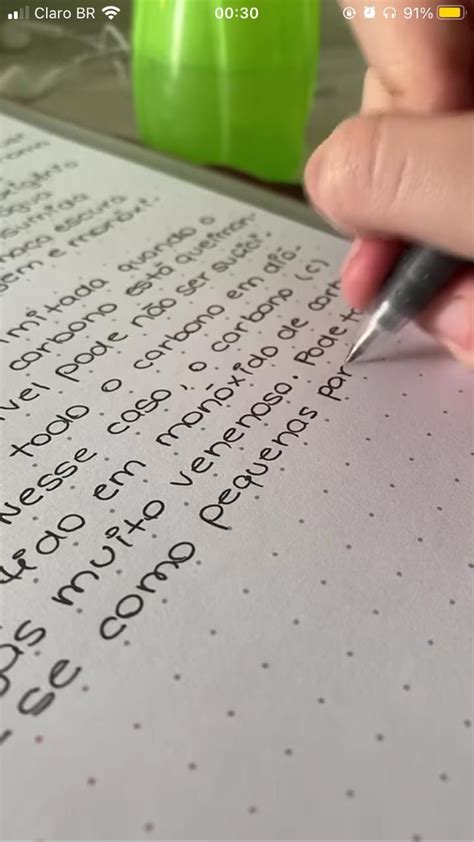 Claro BR
00:30
91%
escura
imitada quando o
carbono está queiman-
vel pode não ser sufici-
todo o carbono em dió-
Nesse caso, o carbono (C)
tido em monóxido de car
ás muito venenoso. Pode t
-se como pequenas par